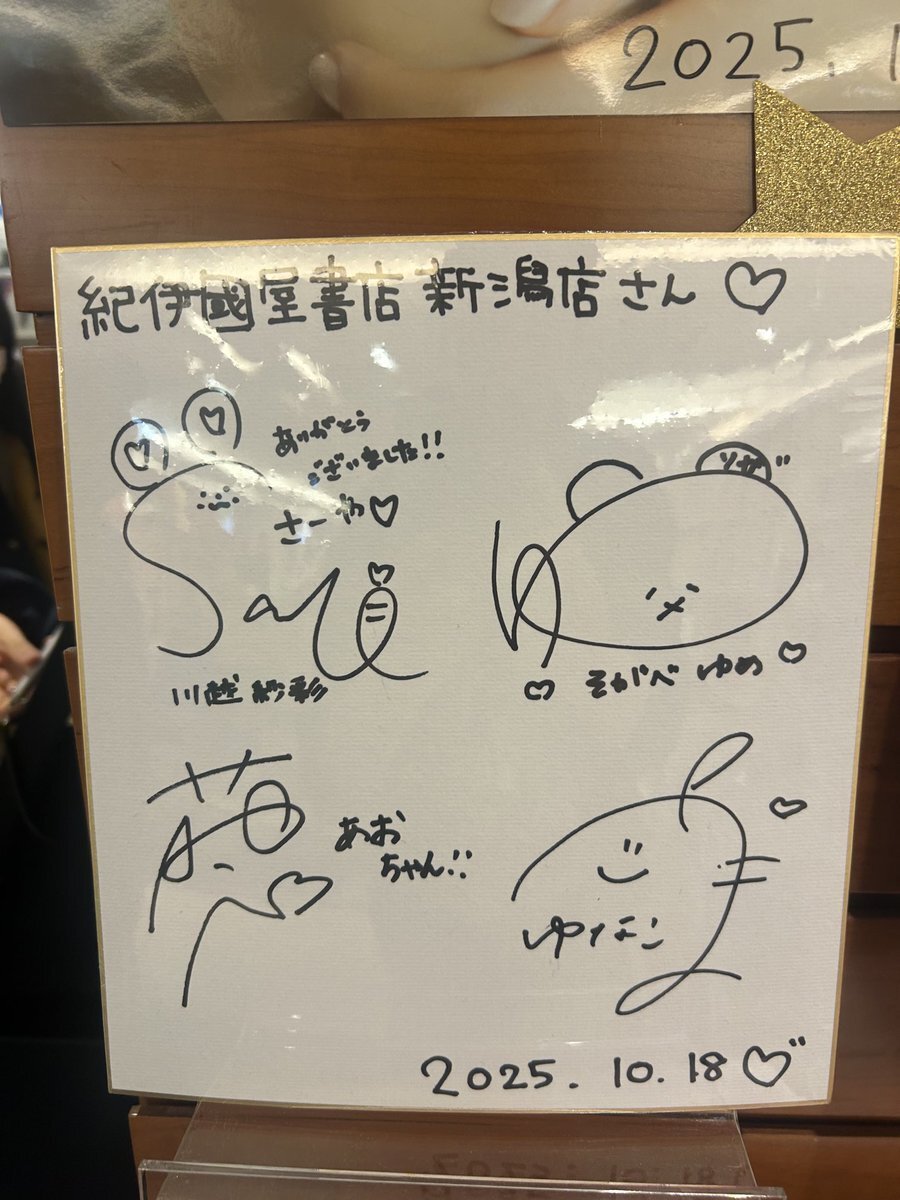 2025. 1
紀伊國屋書店 新潟店 さん ♡
ありがとう
ございました!!
さーや♡
川越紗彩
ソガ
♡ そがべ ゆめ ♡
あお
ちゃん!!
ゆなこ
2025. 10. 18 ♡